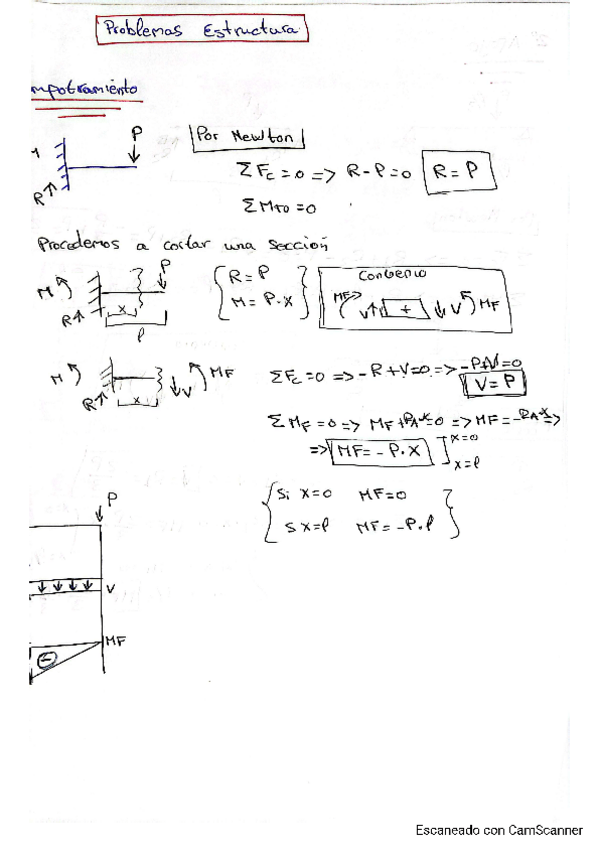 Problemas Estructura
mpotramiento
P
R
Por Newton
ΣFc = 0 => R - P = 0 R = P
ΣMTO = 0
Procedemos a cortar una sección
P
M
R
x
l
R = P
M = P·x
Convenio
MF V + V MF
M
R
x
V
MF
ΣFc = 0 => -R + V = 0 => -P + V = 0
V = P
ΣMF = 0 => MF + RA·x = 0 => MF = -RA·x =>
=> MF = -P·x ] x=0
x=l
Si x=0 MF=0
S x=l MF= -P·l
P
V
MF
Escaneado con CamScanner